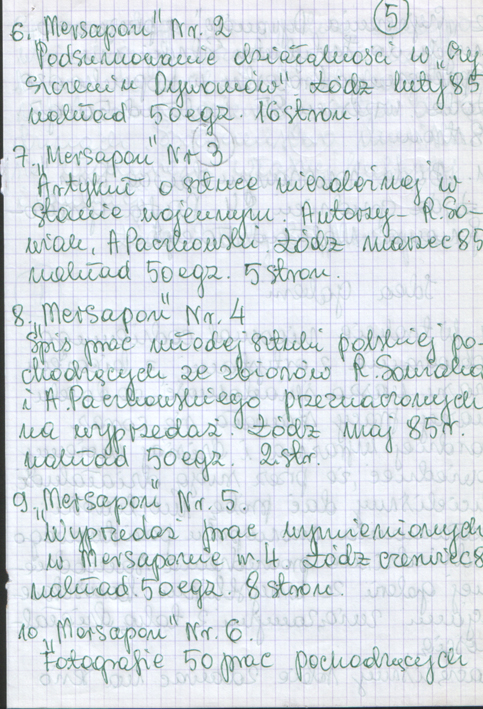 5
6. „Mersapon" Nr. 2
Podsumowanie działalności w „Czy
szczeniu Dywanów" Łódź luty 85
nakład 50 egz. 16 stron.
7. „Mersapon" Nr 3
Artykuł o sztuce niezależnej w
stanie wojennym. Autorzy - R. So-
wiak, A Paczkowski Łódź marzec 85
nakład 50 egz. 5 stron.
8. „Mersapon" Nr. 4
Spis prac młodej sztuki polskiej po-
chodzących ze zbiorów R. Sowiaka
i A. Paczkowskiego przeznaczonych
na wyprzedaż. Łódź maj 85r.
nakład 50 egz. 2 str.
9. „Mersapon" Nr. 5.
Wyprzedaż prac wymienionych
w Mersaponie nr 4 Łódź czerwiec 8
nakład. 50 egz. 8 stron.
10 „Mersapon" Nr. 6.
Fotografie 50 prac pochodzących